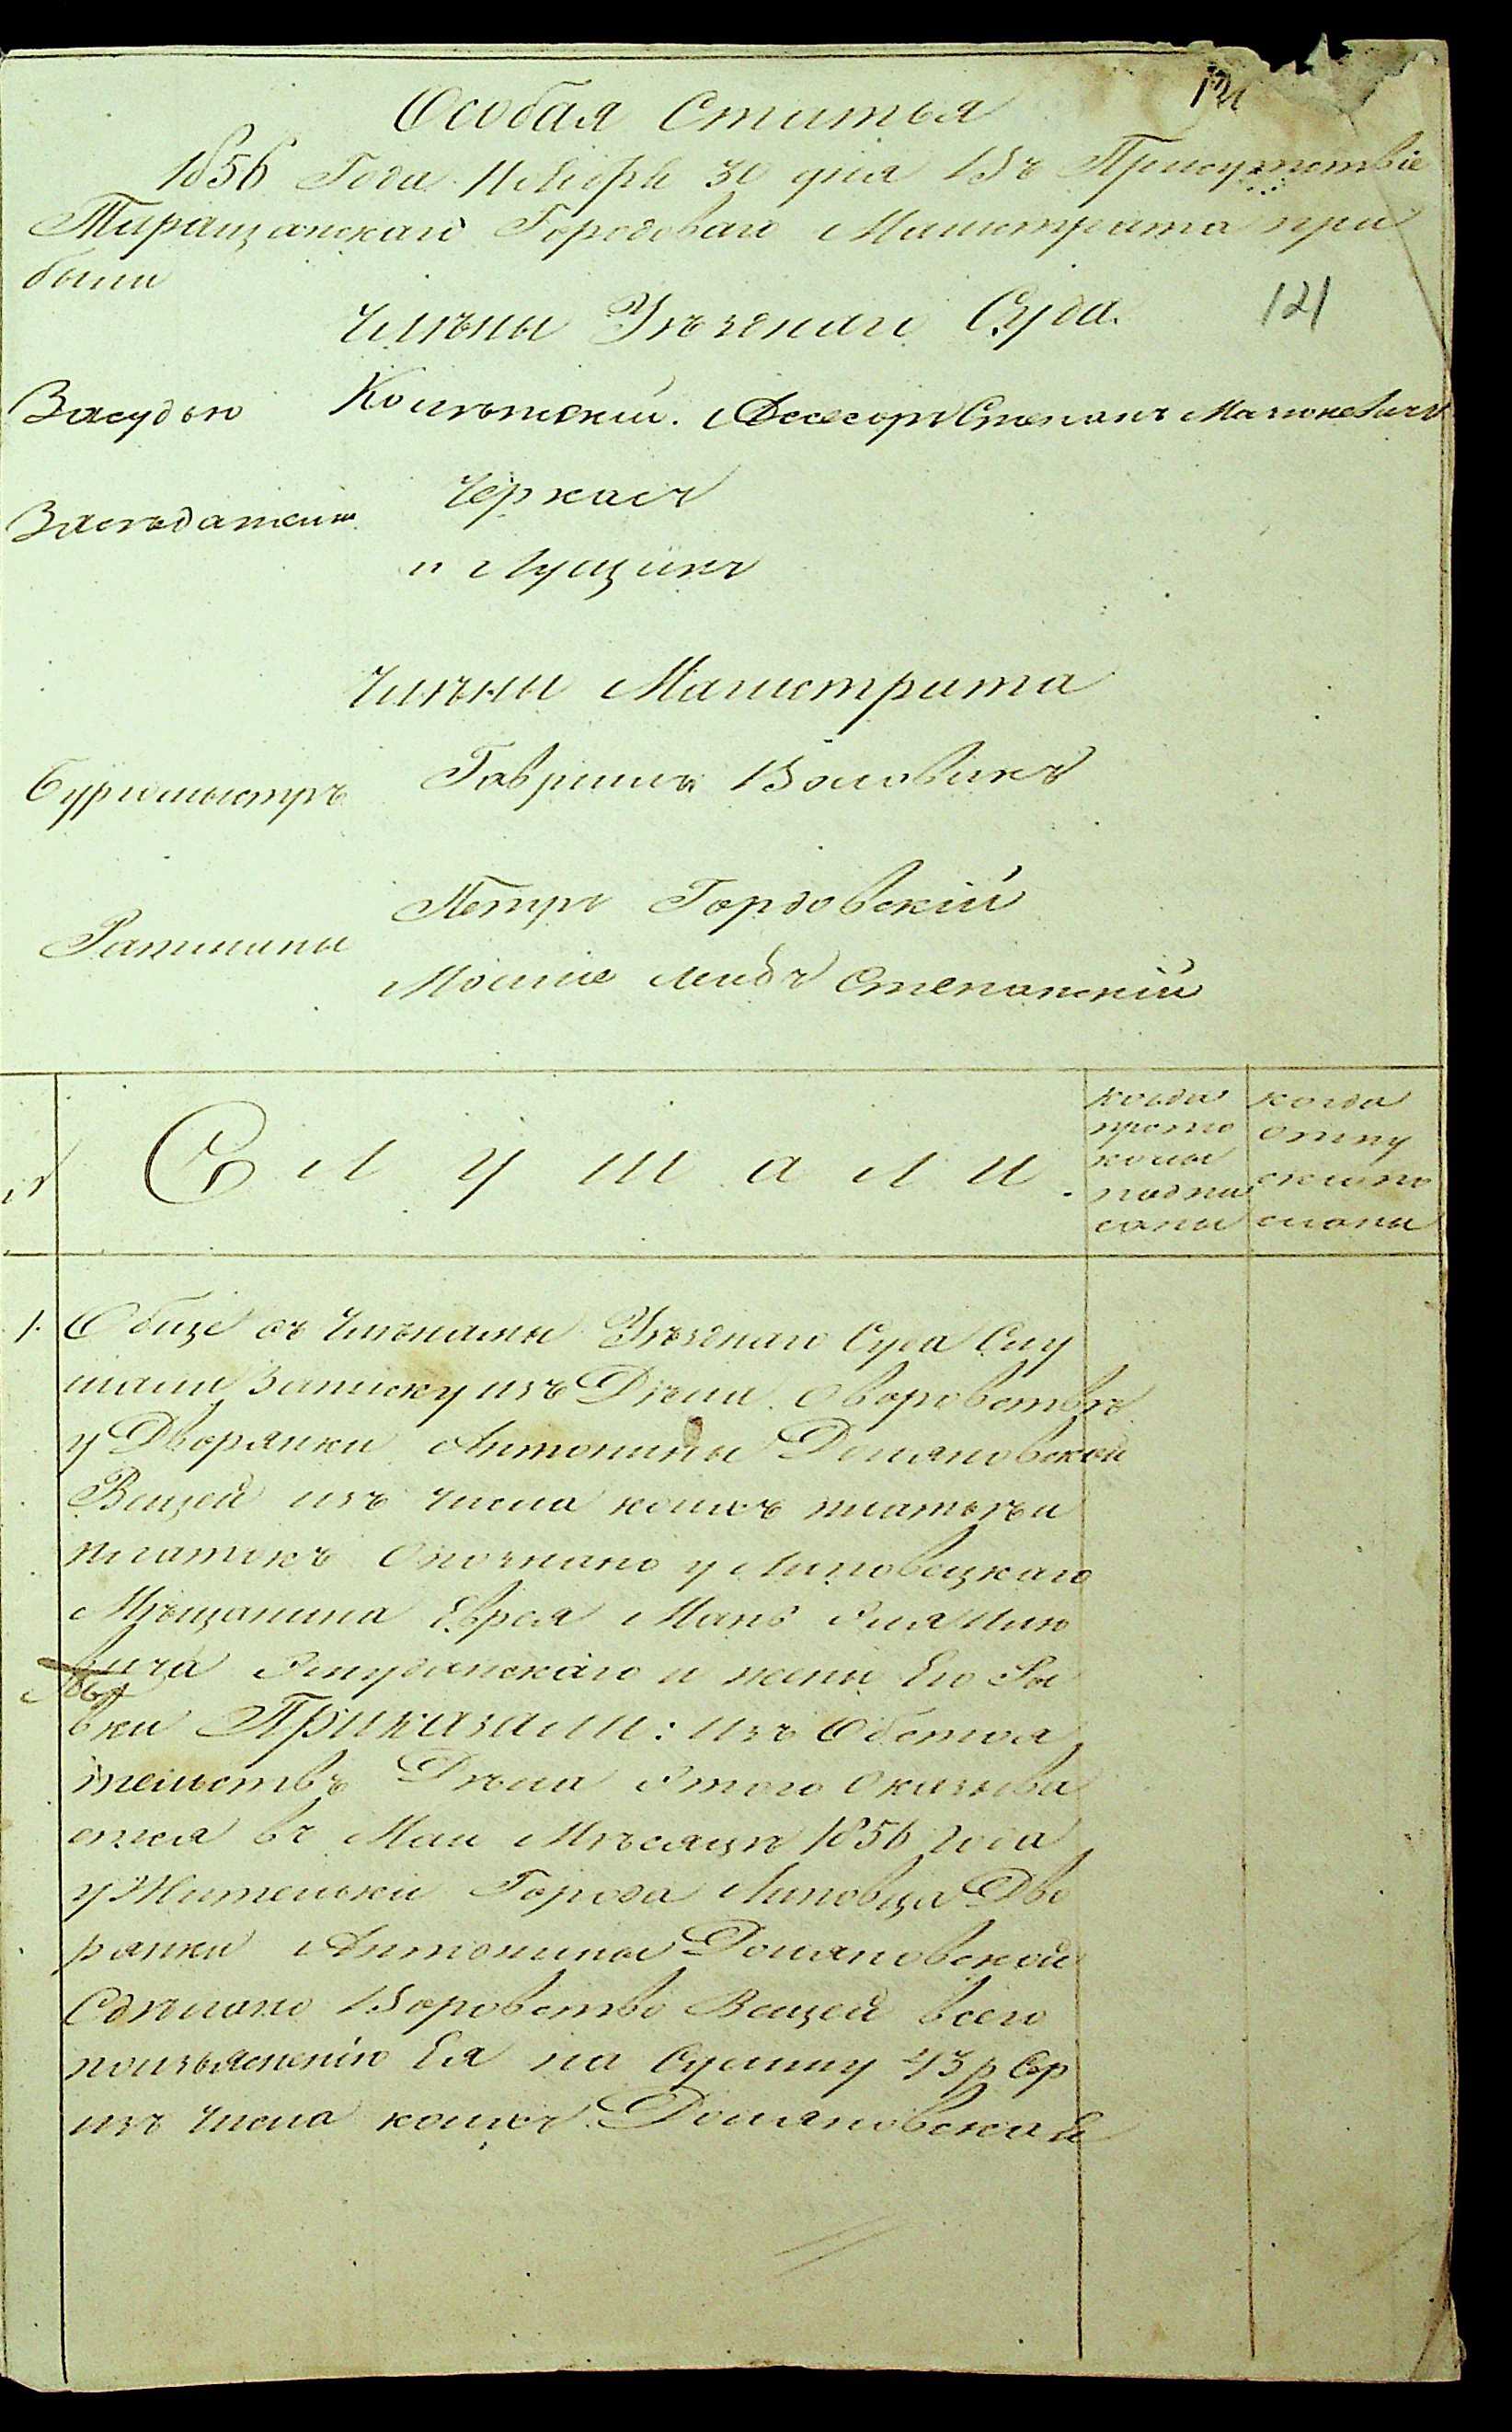 121
Особая Статья
1856 Года Ноября 30 дня Въ Присутствіе
Таращанскаго Городоваго Магистрата при
были
121
Члѣны Уѣзднаго Суда.
Засудью Колѣжскій. Ассесоръ Степанъ
Засѣдатели Черкасъ
и Лущикъ
Члѣны Магистрата
Бургомыстръ Гаврiилъ Воловикъ
Петръ Гордовскій
Ратманы
Мошко Лейбъ Степанскій
№ Слушали.
когда
прото
колы
подпи
саны
когда
отпу
склипо
сланы
1. Обще съ Члѣнамы Уѣзднаго Суда Слу
шали Записку изъ Дѣла о воровствѣ
у Дворянки Антонины Домановской
Вещей изъ числа коихъ платьѣ и
платокъ Опознано у Липовецкаго
Мѣщанина Еврея
вича и жены Его Ры
вки Приказали: изъ Обстоя
тельствъ Дѣла Этого Оказыва
ется въ Маи Мѣсяцѣ 1856 года
у Жительки Города Липовца Дво
рянки Антонины Домановской
Сдѣлано Воровство Вещей всего
поизъясненію Ея на Сумму 43 р Сер
изъ числа коихъ Домановская